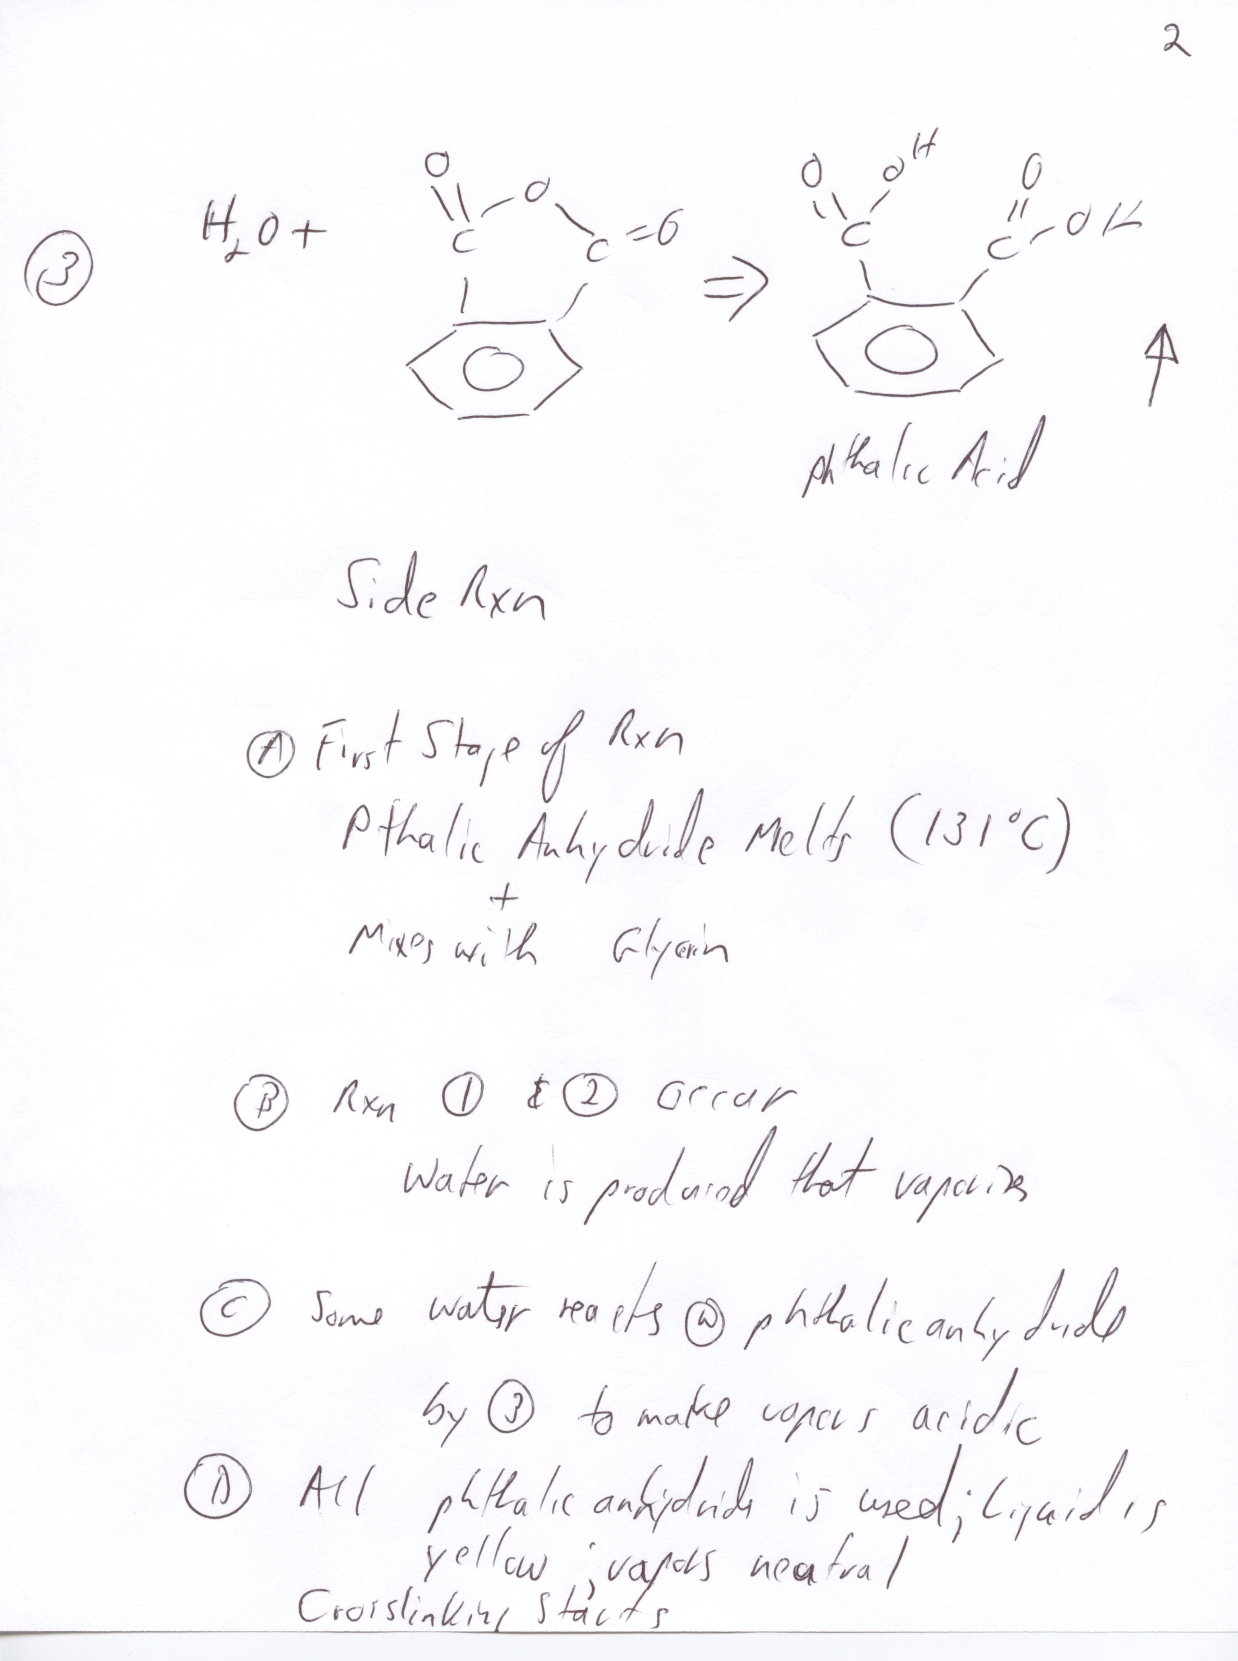 2
③ H₂O + ⇒ ↑
O O C C =O
O OH O C C OH
phthalic Acid
Side Rxn
Ⓐ First Stage of Rxn
Pthalic Anhydride Melts (131°C)
+
Mixes with Glycerin
Ⓑ Rxn ① & ② occur
Water is produced that vaporizes
Ⓒ Some water reacts ⓦ phthalic anhydride
by ③ to make vapors acidic
Ⓓ All phthalic anhydride is used; Liquid is
yellow; vapors neutral
Crosslinking starts